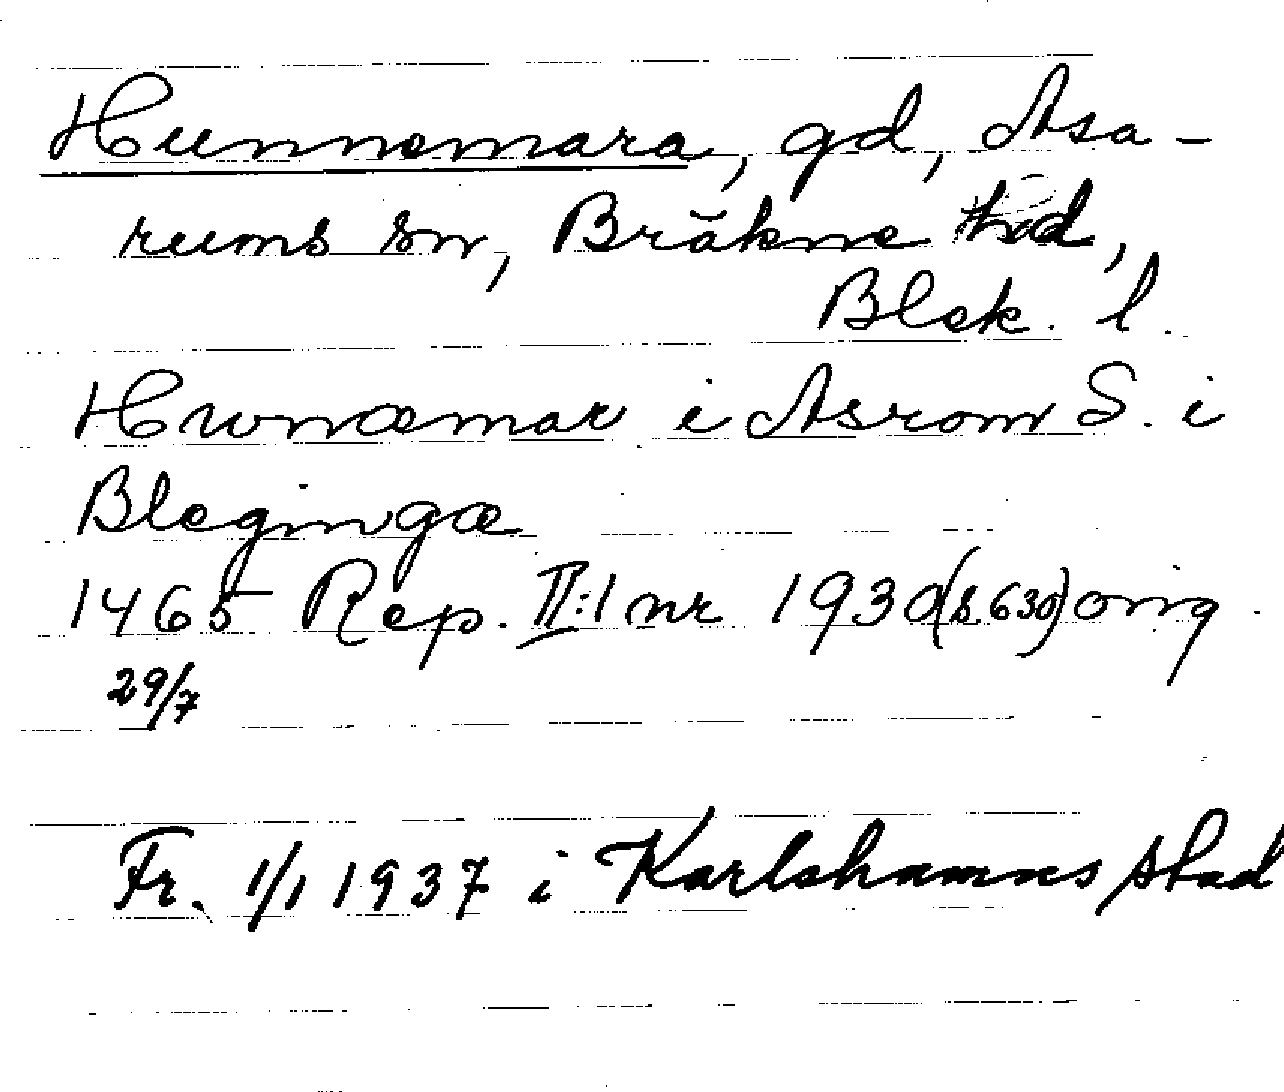 Hunnemara, gd, Asa-
rums sn, Bräkne hd,
Blek. l.
Hwnæmar i Asrom S. i
Blegingæ
1465 Rep. II:1 nr 1930 (s. 630) orig.
29/7
Fr. 1/1 1937 i Karlshamns stad